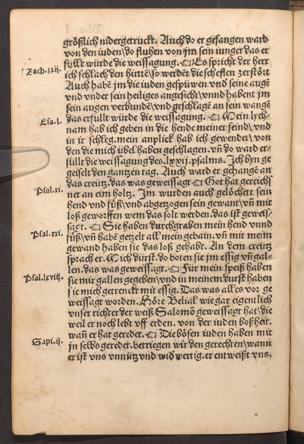 größlich nidergetruckt. Auch do er gefangen ward
von den iuden/do fluhen von jm sein iunger das er
füllt würde die weissagung. Es spricht der herr
Zach. xiij.
ich schlach den hirtē/so werdēt die scheffen zerstört
Auch habē jm die iuden gespüwen vnd seine augē
vnd vnder sein heiliges angesicht/vnnd haben jm
sein augen verbundē/vnd geschlagē an sein wangē
das erfült würde die weissagung. Mein lych
Esa. l.
nam hab ich geben in die hende meiner feind/vnnd
in ir schleg. mein antplic hab ich gewendet/von
den die mich übel haben geschlagen. vn̄ do ward er
füllt die weissagung des. lxxij. psalms. Ich byn ge
geiselt den ganzen tag. Auch ward er gehangē an
das creütz. das was geweissagt Gott hat gereichs
Psal. xi.
net an eim holtz. Jm wurden auch gelöchert sein
hend vnd füß/vnd abgetzogen sein gewant/vn̄ mit
loß geworffen wem das solt werden. das ist geweis
sagt. Sie haben durchgraben mein hend vnnd
Psal. xxi.
füß/vn̄ habē getzelt all mein gebain. vn̄ mit mein
gewand haben sie das loß gehabt. An dem creütz
sprach er. Mich dürst. do boten sie jm essig vn̄ gal-
len. das was geweissagt. Für mein speiß haben
Psal. lxviij.
sie mir gallen gegeben/vnd in meinem durst haben
sie mich getrenckt mit essig. Das was alles vor ge
weissagt worden. Höre Beliah wie gar eigentlich
vnser richter der weiß Salomō geweissagt hat/die
weil er noch lebt vff erden. von der iuden boßheit.
wan̄ er hat geredet. Die bösen iuden haben mit
Sapi. ij.
jn selbs geredet. betriegen wir den gerechten/wann
er ist vns vnnütz vnd vnd wertig. er entweißt vns.